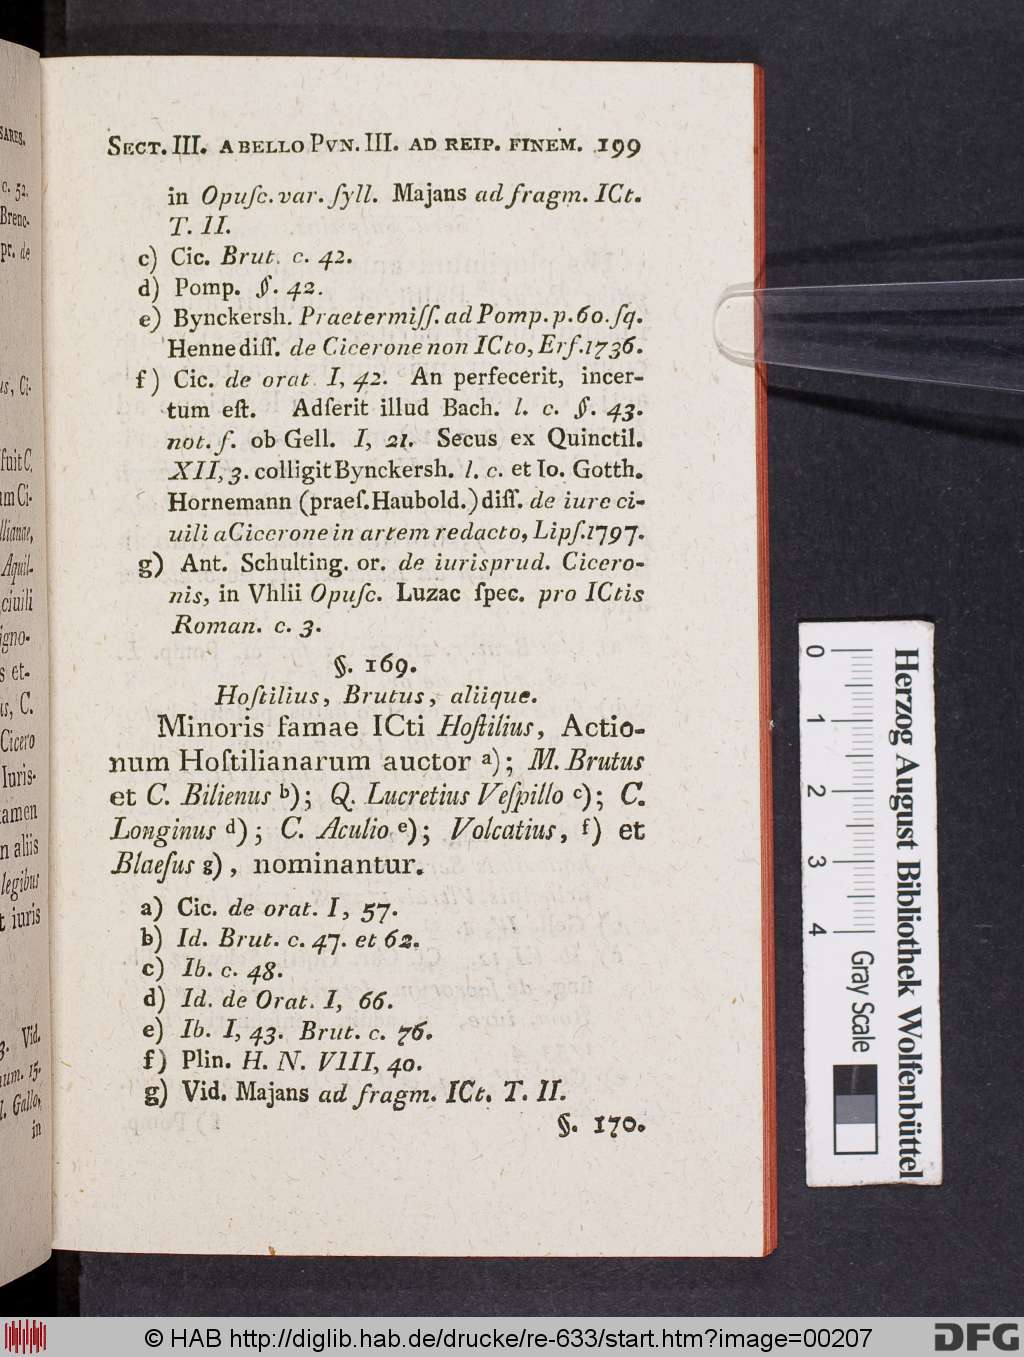 SECT. III. A BELLO PVN. III. AD REIP. FINEM. 199
in Opuſc. var. ſyll. Majans ad fragm. ICt.
T. II.
c) Cic. Brut. c. 42.
d) Pomp. §. 42.
e) Bynckersh. Praetermiſſ. ad Pomp. p. 60. ſq.
Henne diſſ. de Cicerone non ICto, Erf. 1736.
f) Cic. de orat. I, 42. An perfecerit, incer-
tum eſt. Adſerit illud Bach. l. c. §. 43.
not. f. ob Gell. I, 21. Secus ex Quinctil.
XII, 3. colligit Bynckersh. l. c. et Io. Gotth.
Hornemann (praeſ. Haubold.) diſſ. de iure ci-
uili a Cicerone in artem redacto, Lipſ. 1797.
g) Ant. Schulting. or. de iurisprud. Cicero-
nis, in Vhlii Opuſc. Luzac ſpec. pro ICtis
Roman. c. 3.
§. 169.
Hoſtilius, Brutus, aliique.
Minoris famae ICti Hoſtilius, Actio-
num Hoſtilianarum auctor a); M. Brutus
et C. Bilienus b); Q. Lucretius Veſpillo c); C.
Longinus d); C. Aculio e); Volcatius, f) et
Blaeſus g), nominantur.
a) Cic. de orat. I, 57.
b) Id. Brut. c. 47. et 62.
c) Ib. c. 48.
d) Id. de Orat. I, 66.
e) Ib. I, 43. Brut. c. 76.
f) Plin. H. N. VIII, 40.
g) Vid. Majans ad fragm. ICt. T. II.
§. 170.
SARES.
c. 52.
Brenc-
pr. de
us, Ci-
fuit C.
um Ci-
llianae,
Aquil-
ciuili
igno-
s et-
us, C.
Cicero
Iuris-
tamen
n aliis
legibus
t iuris
3. Vid.
num. 15.
l. Gallo,
in
0 1 2 3 4
Gray Scale
Herzog August Bibliothek Wolfenbüttel
© HAB http://diglib.hab.de/drucke/re-633/start.htm?image=00207
DFG